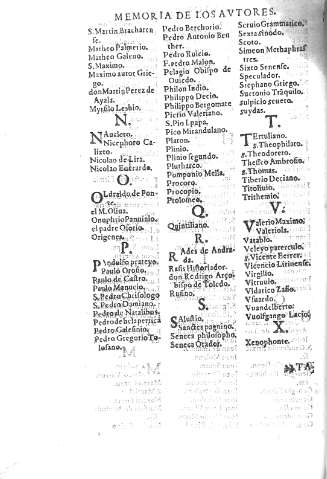 MEMORIA DE LOS AVTORES.
S. Martin Bracharen
se.
Matheo Palmerio.
Matheo Galeno.
S. Maximo.
Maximo autor Grie-
go.
don Martin Perez de
Ayala.
Myrsilo Lesbio.
N.
Nauclero.
Nicephoro Ca-
lixto.
Nicolao de Lira.
Nicolao
O.
Oldraldo, de Pon-
te.
el M. Oliua.
Onuphrio Panuinio.
el padre Osorio.
Origenes.
P.
Pandulfo
Paulo Orosio.
Paulo de Castro.
Paulo Manucio.
S. Pedro Chrisologo
S. Pedro Damiano.
Pedro de Natalibus.
Pedro de la
Pedro Galesinio.
Pedro Gregorio To-
losano.
Pedro Berchorio.
Pedro Antonio Beu
ther.
Pedro Ruicio.
F. Pedro Malon.
Pelagio Obispo de
Ouiedo.
Philon Indio.
Philippo Decio.
Philippo Bergomate
Pierio Valeriano.
S. Pio I. papa.
Pico Mirandulano.
Platon.
Plinio.
Plinio segundo.
Plutharco.
Pomponio Mella.
Procoro.
Procopio.
Ptolomeo.
Q.
Quintiliano.
R.
Rades de Andra-
da.
Rasis Historiador.
don Rodrigo Arço
bispo de Toledo.
Rufino.
S.
Salustio.
Sanctes pagnino.
Seneca philosopho.
Seneca Orador.
Seruio Grammatico.
Sexta sinodo.
Scoto.
Simeon Methaphras
tres.
Sixto Senense.
Speculador.
Stephano Griego.
Suetonio Tranquilo.
sulpicio seuero.
suydas.
T.
Tertuliano.
s. Theophilato.
s. Theodoreto.
Theseo Ambrosio.
s. Thomas.
Tiberio Deciano.
Titoliuio.
Trithemio.
V.
Valerio Maximo.
Valeriola.
Vatablo.
Veleyo paterculo.
s. Vicente Ferrer.
Vicencio Lirinense.
Virgilio.
Vitruuio.
Vldarico Zasio.
Visardo.
Vuandelberto.
Vuolfgango Lacio.
X.
Xenophonte.
TA